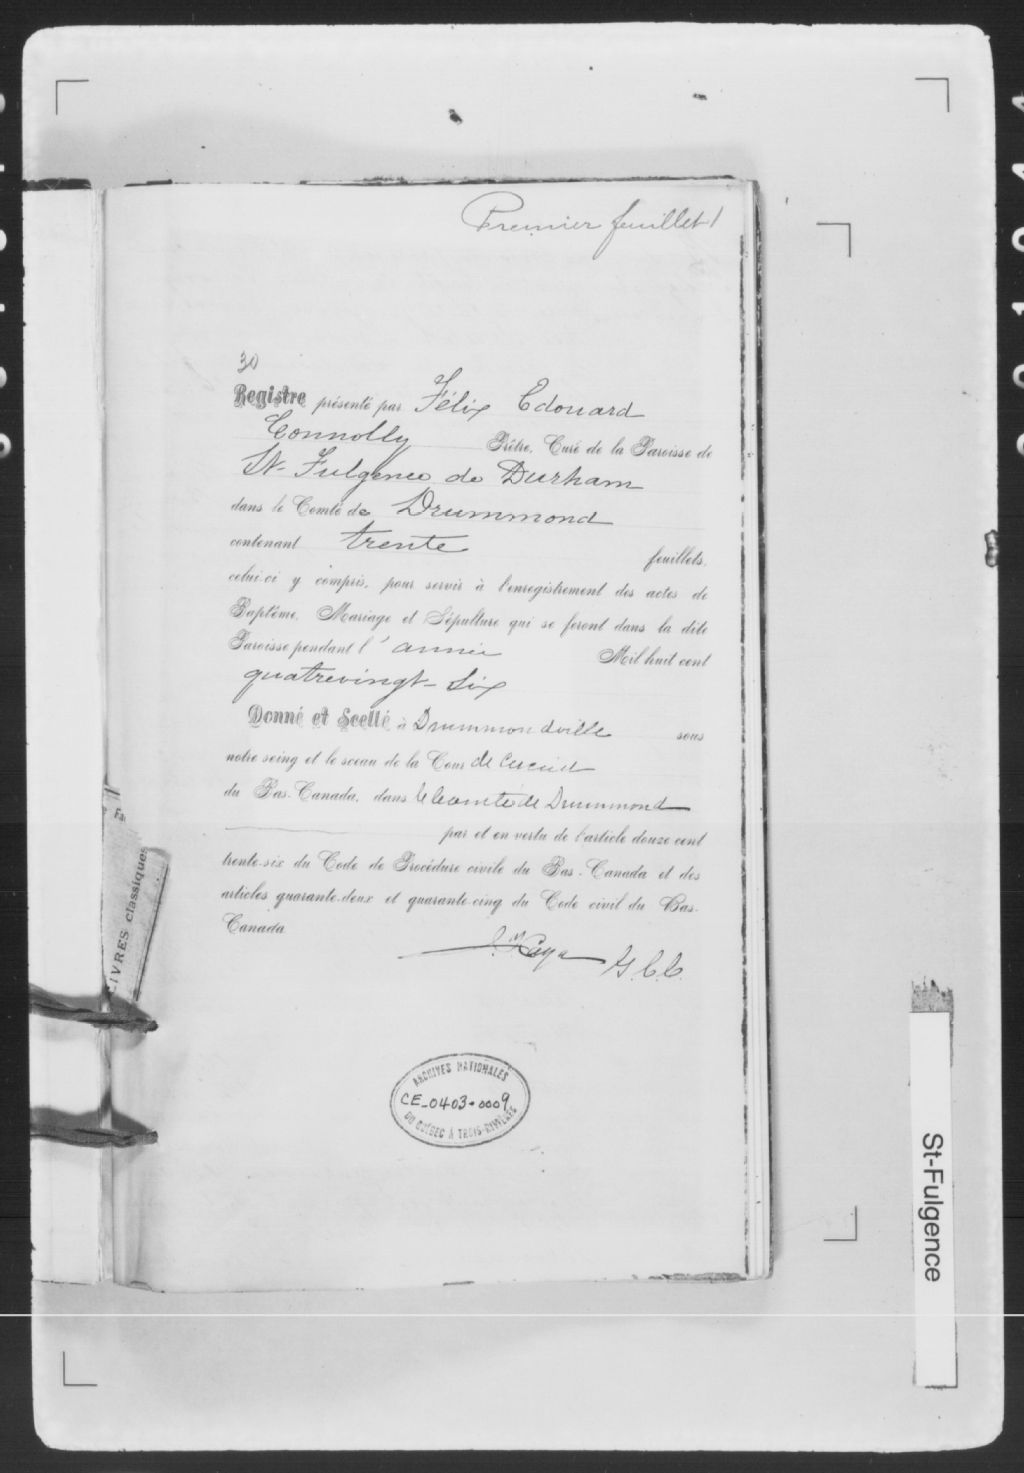 Premier feuillet 1
30
Registre présenté par Félix Edouard
Connolly Prêtre, Curé de la Paroisse de
St-Fulgence de Durham
dans le Comté de Drummond
contenant trente feuillets,
celui-ci y compris, pour servir à l'enregistrement des actes de
Baptême, Mariage et Sépulture qui se feront dans la dite
Paroisse pendant l'année Mil huit cent
quatrevingt-six
Donné et Scellé à Drummondville sous
notre seing et le sceau de la Cour de Circuit
du Bas-Canada, dans le comté de Drummond
par et en vertu de l'article douze cent
trente-six du Code de Procédure civile du Bas-Canada et des
articles quarante-deux et quarante-cinq du Code civil du Bas-
Canada
G.C.C.
ARCHIVES NATIONALES
CE-0403-0009
DU QUÉBEC À TROIS-RIVIÈRES
LIVRES classiques
St-Fulgence